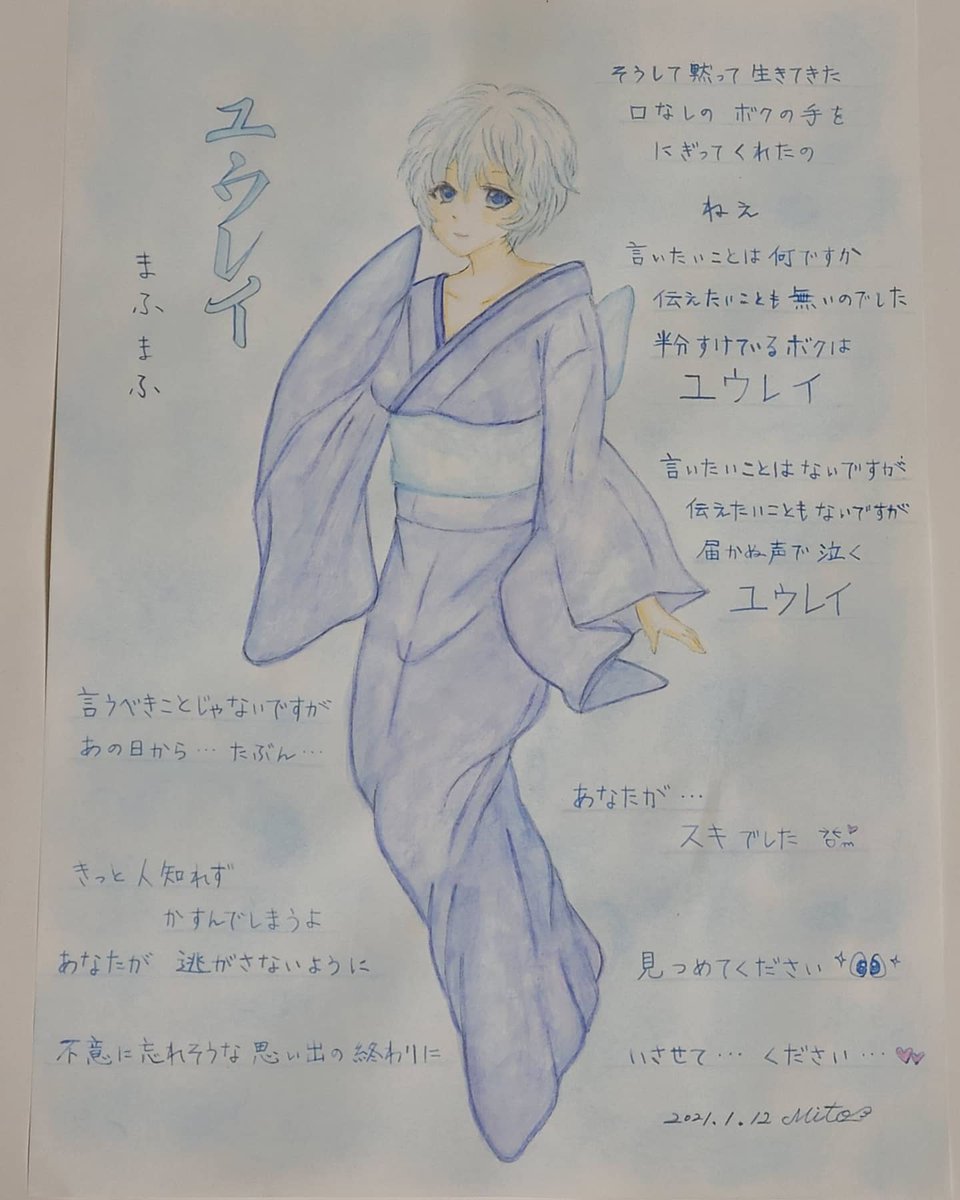 ユウレイ
まふまふ
そうして黙って生きてきた
口なしの ボクの手を
にぎってくれたの
ねえ
言いたいことは何ですか
伝えたいことも無いのでした
半分すけているボクは
ユウレイ
言いたいことはないですが
伝えたいこともないですが
届かぬ声で泣く
ユウレイ
言うべきことじゃないですが
あの日から… たぶん…
あなたが…
スキでした
きっと人知れず
かすんでしまうよ
あなたが 逃がさないように
見つめてください
不意に忘れそうな思い出の終わりに
いさせて… ください…
2021.1.12 Mito